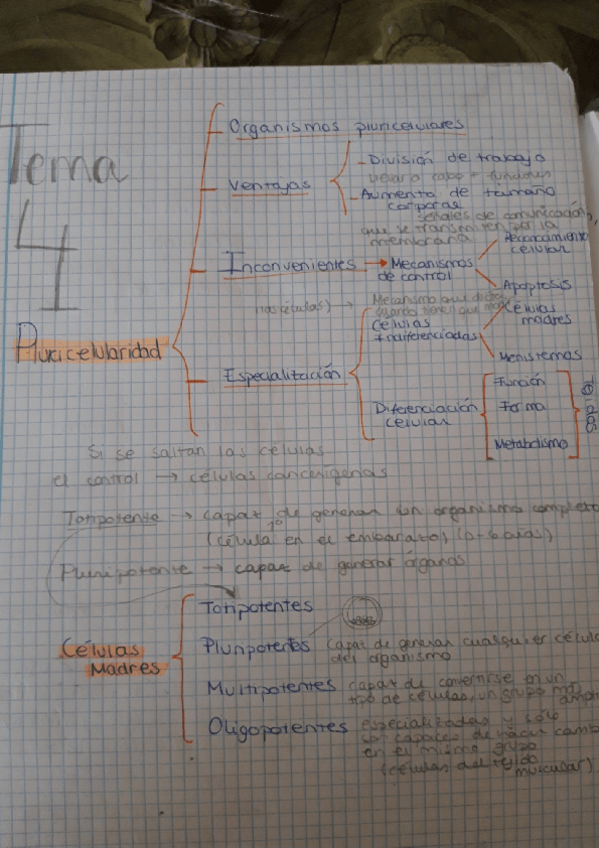 Tema
4
Organismos pluricelulares
Ventajas
- División de trabajo
llevar a cabo + funciones
- Aumento de tamaño
corporal
señales de comunicación,
que se transmiten por la
membrana
Inconvenientes → Mecanismos
de control
Reconocimiento
celular
Apoptosis
Mecanismo que
cuando tienen que
Pluricelularidad
Especialización
Células
indiferenciadas
Células
madres
Meristemas
Diferenciación
celular
Función
Forma
Metabolismo
Tejidos
Si se saltan las células
el control → células cancerígenas
Totipotente → capaz de generar un organismo completo
(célula en el embarazo) (0-6 días)
Pluripotente → capaz de generar órganos
Células
Madres
Totipotentes
Pluripotentes capaz de generar cualquier célula
del organismo
Multipotentes capaz de convertirse en un
tipo de células, un grupo más
amplio
Oligopotentes especializadas y sólo
son capaces de hacer cambio
en el mismo grupo
(células del tejido
muscular)